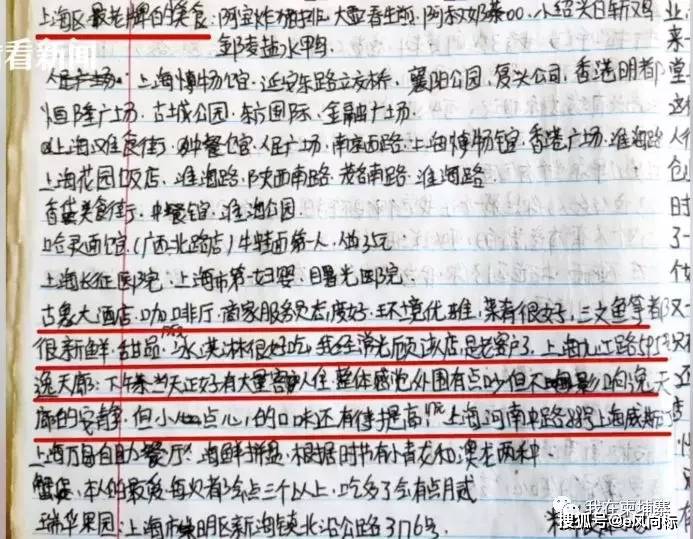 看看新闻
上海区最老牌的美食:阿宝炸猪排、大壶春生煎、阿 奶茶00、小绍兴白斩鸡
盐水鸭
人民广场、上海博物馆、延安东路立交桥、襄阳公园、复兴公园、香港名都
恒隆广场、古城公园、东方国际、金融广场
上海 食街、 餐馆、人民广场、南京西路、上海博物馆、香港广场、淮海路
上海花园饭店、淮海路、陕西南路、茂名南路、淮海路
美食街、中餐馆、淮海公园
哈灵面馆、(广西北路店)牛 面第一人、 25元
上海长征医院、上海市第一妇婴、曙光医院
古象大酒店、咖啡厅、商家服务员态度好、环境优雅、菜肴很好、三文鱼等都
很新鲜、甜品、冰淇淋很好吃、我经常光顾该店、是老客户了、上海九江路595号
逸天廊:下午茶当天正好有大量客人住、整体感觉外围有点吵但不影响逸天
廊的安静、但小点心、的口味还有待提高、上海河南中路 号上海威斯
上海万 自助餐厅:海鲜拼盘、根据时节有小青龙和澳龙两种
蟹 、本人的最爱每次都会点三个以上、吃多了会有点月贰
瑞华果园:上海市崇明区新海镇北沿公路3176号
业
来
堂
人
仓
时
了
做
又
天
店
我在柬埔寨
搜狐号@B风向标